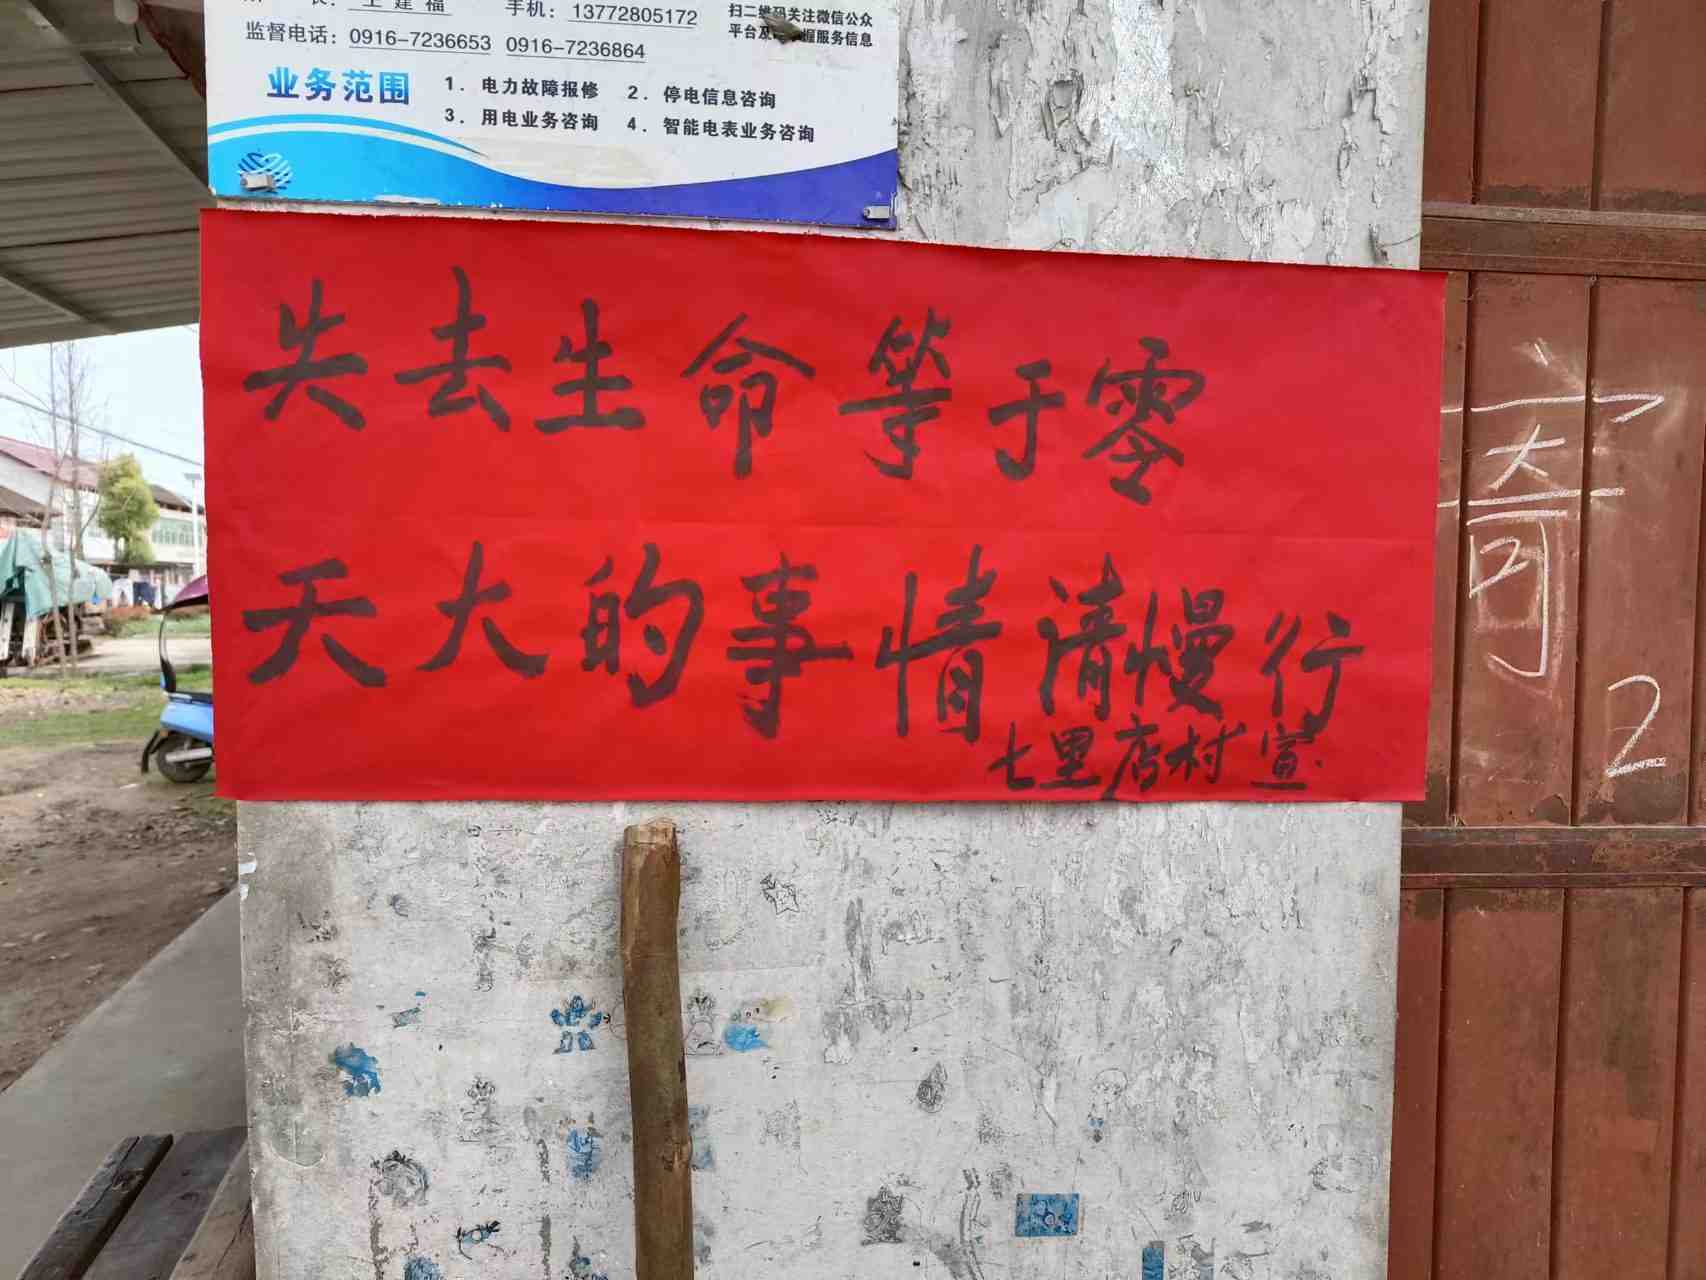 长：王建福 手机：13772805172
监督电话：0916-7236653 0916-7236864
扫二维码关注微信公众
平台及 握服务信息
业务范围
1．电力故障报修 2．停电信息咨询
3．用电业务咨询 4．智能电表业务咨询
失去生命等于零
天大的事情清慢行
七里店村宣
寄
2